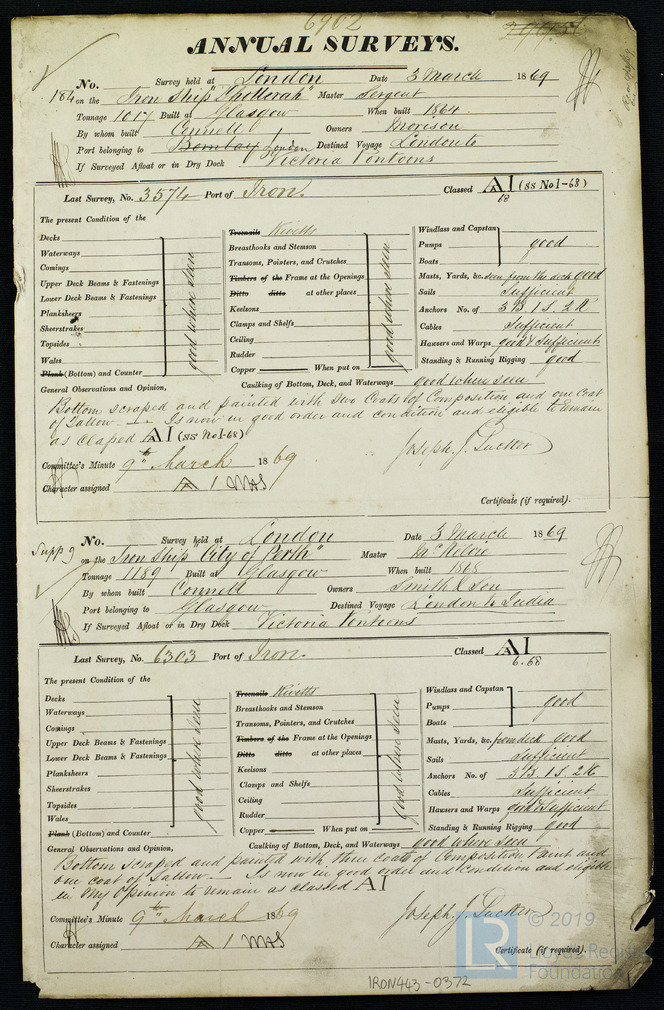 6902
ANNUAL SURVEYS.
No. Survey held at London Date 3 March 1869
184 on the Iron Ship "Shotterah" Master Sergent
Tonnage 1017 Built at Glasgow When built 1864
By whom built Connell Owners Morison
Port belonging to Bombay London Destined Voyage London to
If Surveyed Afloat or in Dry Dock Victoria Pontoons
Last Survey, No. 3574 Port of Iron. Classed AI (SS No I-68)
68
The present Condition of the
Decks
Waterways
Comings
Upper Deck Beams & Fastenings
Lower Deck Beams & Fastenings
Planksheers
Sheerstrakes
Topsides
Wales
Plank (Bottom) and Counter
good when seen
Treenails Rivetts
Breasthooks and Stemson
Transoms, Pointers, and Crutches
Timbers of the Frame at the Openings
Ditto ditto at other places
Keelsons
Clamps and Shelfs
Ceiling
Rudder
Copper When put on
good when seen
Windlass and Capstan
Pumps good
Boats
Masts, Yards, &c. seen from the deck good
Sails Sufficient
Anchors No. of 3 B. 1 S. 2 K
Cables Sufficient
Hawsers and Warps good & Sufficient
Standing & Running Rigging good
General Observations and Opinion, Caulking of Bottom, Deck, and Waterways good when seen
Bottom scraped and painted with two Coats of Composition and one Coat
of Tallow. Is now in good order and condition and eligible to remain
as classed AI (SS No I-68)
Joseph J. Tucker
Committee's Minute 9th March 1869
Character assigned A 1
Certificate (if required).
Supp 9 No. Survey held at London Date 3 March 1869
on the Iron Ship "City of Perth" Master
Tonnage 1189 Built at Glasgow When built 1868
By whom built Connell Owners Smith & Son
Port belonging to Glasgow Destined Voyage London to India
If Surveyed Afloat or in Dry Dock Victoria Pontoons
Last Survey, No. 6303 Port of Iron. Classed AI
6.68
The present Condition of the
Decks
Waterways
Comings
Upper Deck Beams & Fastenings
Lower Deck Beams & Fastenings
Planksheers
Sheerstrakes
Topsides
Wales
Plank (Bottom) and Counter
good where seen
Treenails Rivetts
Breasthooks and Stemson
Transoms, Pointers, and Crutches
Timbers of the Frame at the Openings
Ditto ditto at other places
Keelsons
Clamps and Shelfs
Ceiling
Rudder
Copper When put on
good where seen
Windlass and Capstan
Pumps good
Boats
Masts, Yards, &c. from deck good
Sails Sufficient
Anchors No. of 3 B. 1 S. 2 K
Cables Sufficient
Hawsers and Warps good & Sufficient
Standing & Running Rigging good
General Observations and Opinion, Caulking of Bottom, Deck, and Waterways good where seen
Bottom scraped and painted with three coats of Composition Paint and
one coat of Tallow. Is now in good order and Condition and eligible
in my Opinion to remain as classed AI
Joseph J. Tucker
Committee's Minute 9th March 1869
Character assigned A 1
Certificate (if required).
© 2019
LR
Lloyd's Register
Foundation
IRON443-0372